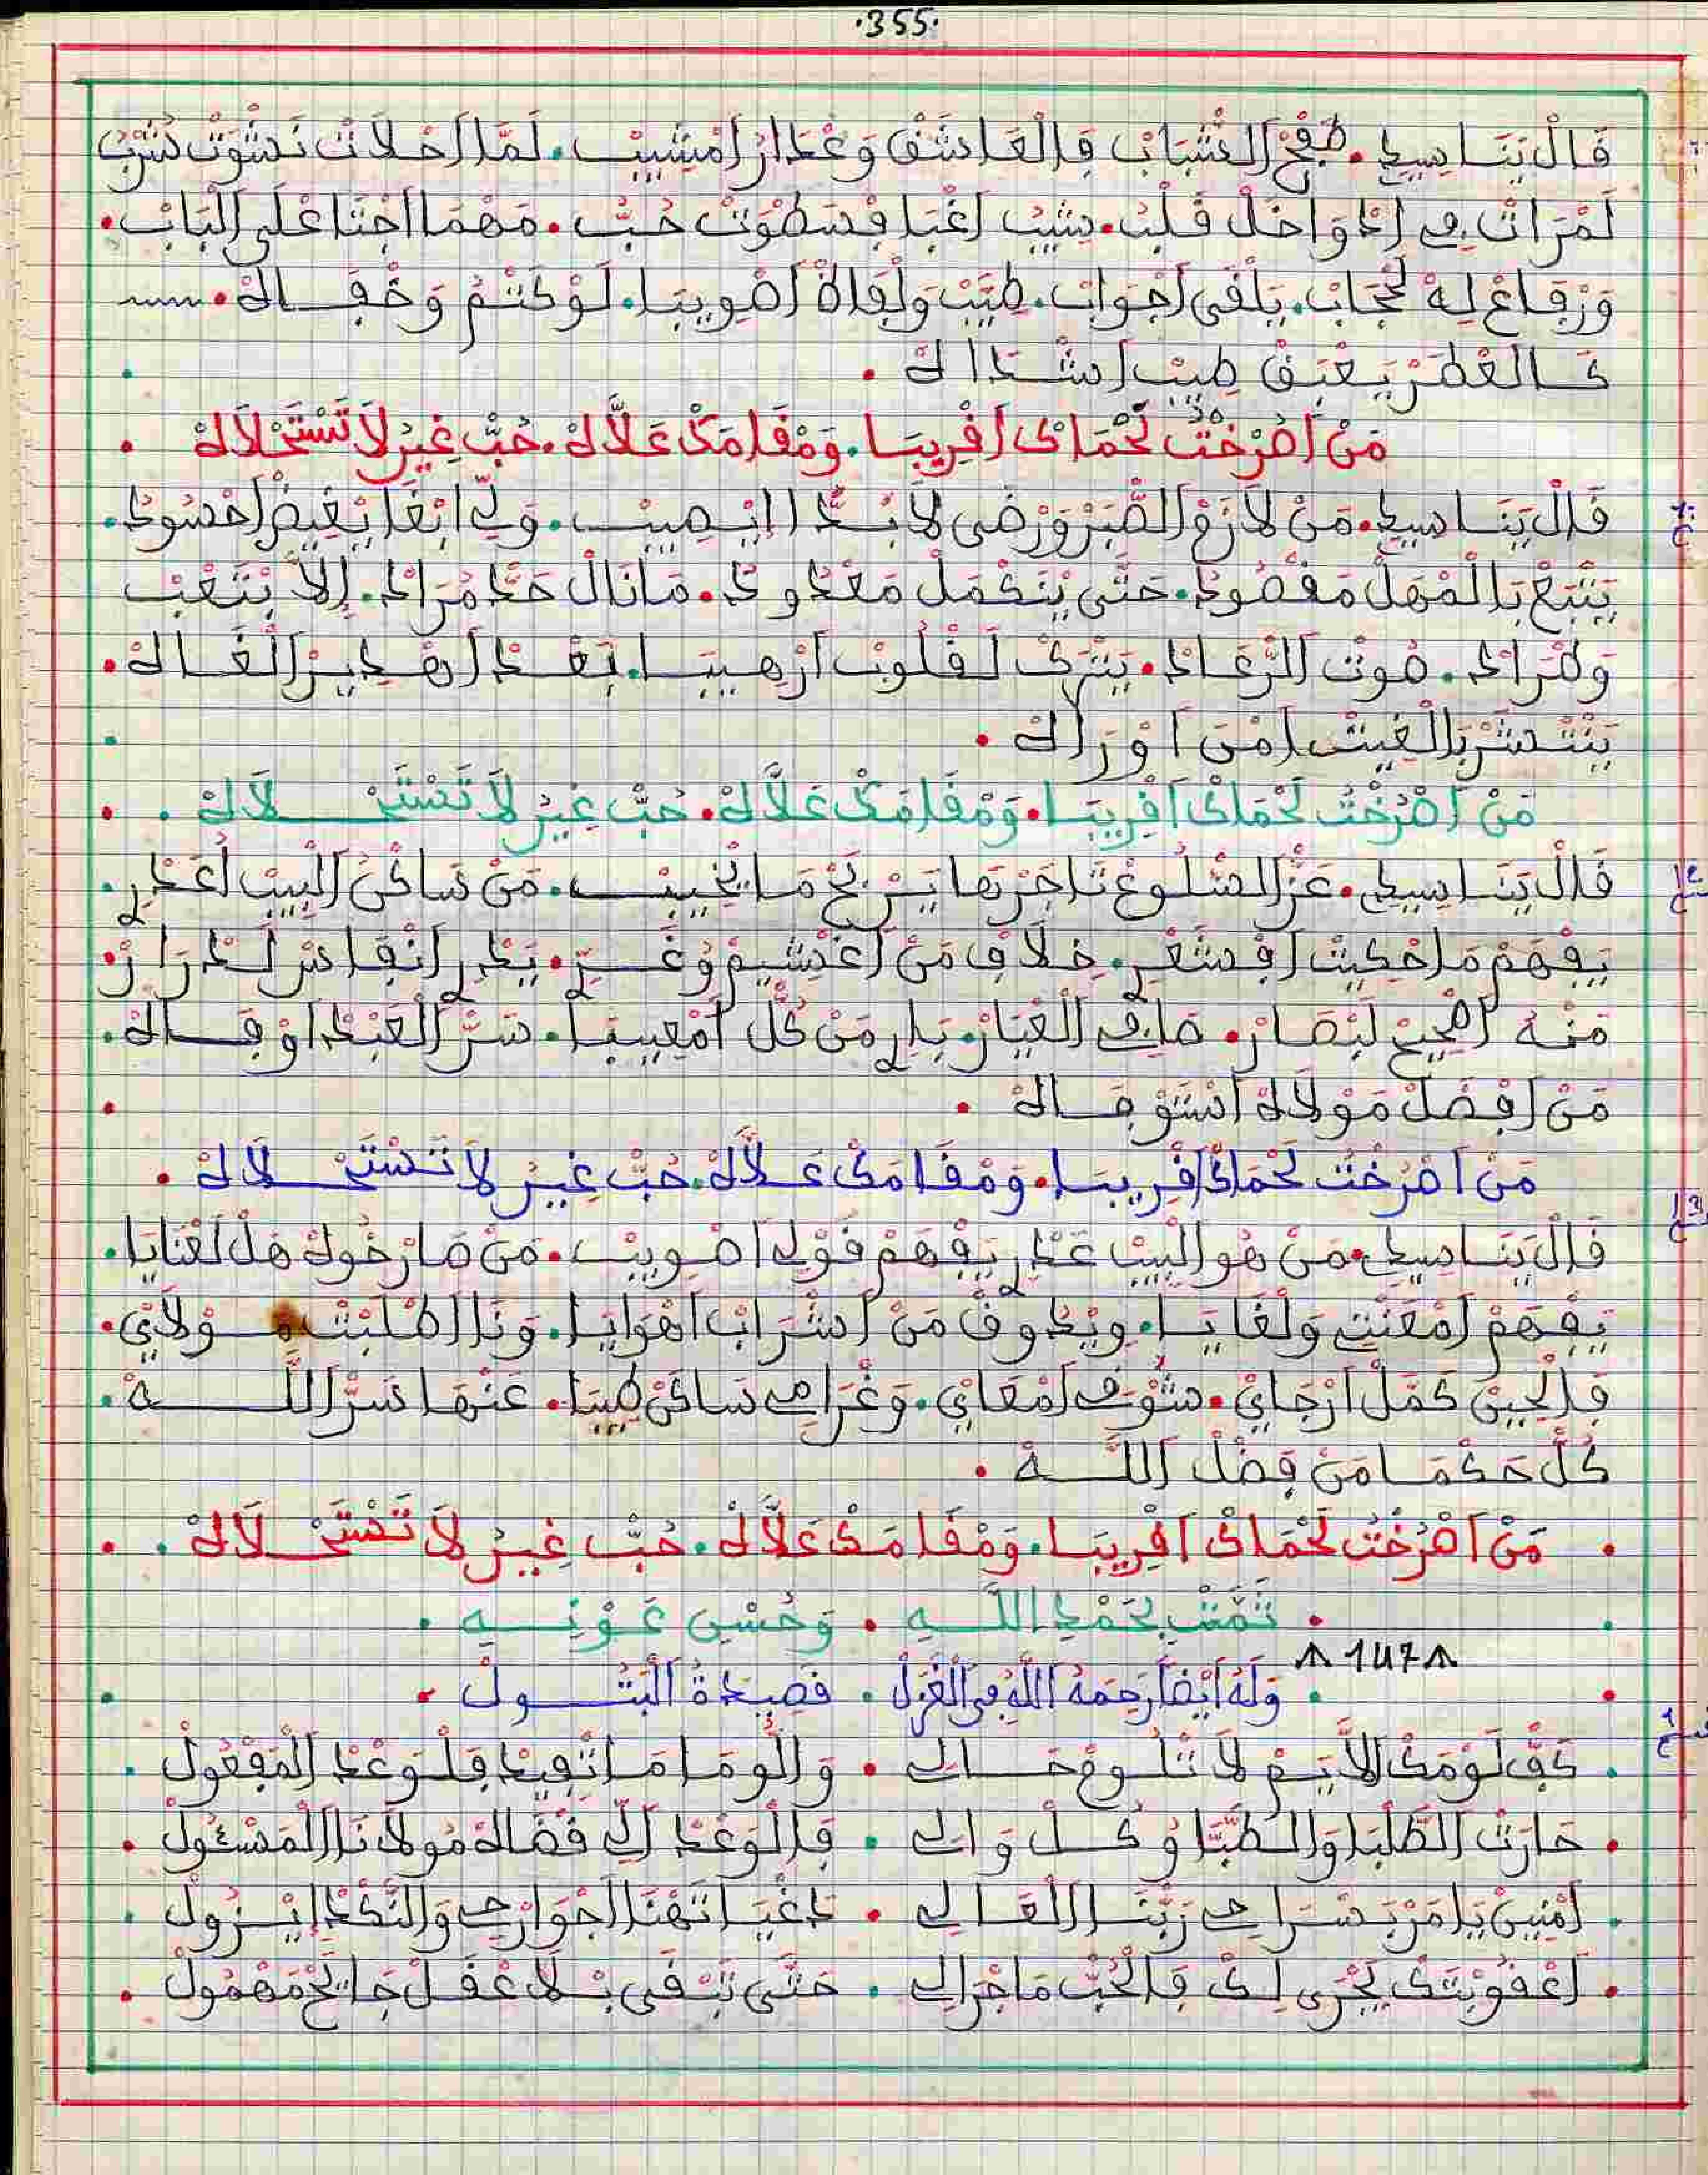 .355.
قَالْ يَنَاسِيدِي. طَفْحْ اَلشَّبَابْ فَالْعَاشَقْ وَعْدَارْ اَمْشِيبْ. لَمَّا اَحْلَاتْ نَشْوَتْ شُرْبُ
لَمْرَاتْ فِي اَدْوَاخَلْ قَلْبُ. شِيبْ اَغْبَا فْسَطْوَتْ حُبُّ. مَهْمَا اَجْنَا عْلَى اَلْبَابْ.
وَرْفَاعْ لِهْ لَحْجَابْ. يَلْقَى اَجْوَابْ. طِيَّبْ وَلْفَاهْ اَصْوِيبَا. لَوْ كَتْمُ وَخْفَاهْ.
كَالْعْطَرْ يَعْبَقْ طِيبْ اَشْدَاهْ.
مَنْ اَصْرَخْتْ لَحْمَاكْ اَقْرِيبَا. وَمْقَامَكْ عَلَّاهْ. حُبّْ غِيرُ لَا تَسْتَحْلَاهْ.
قَالْ يَنَاسِيدِي. مَنْ لَازَمْ اَلصَّبَرْ وَرْضَى لَابُدَّا اِيْصِيبْ. وَلِّي اَبْغَا يْغِيضْ اَحْسُودُ.
يَتْبَعْ بَالْمْهَلْ مَقْصُودُ. حَتَّى يْتَكْمَلْ مَعْدُودُ. مَا نَالْ حَدْ مُرَادْ. إِلَا بْتَعْبْ
وَطْرَادْ. صُوتْ اَلرّْعَادْ. يَتْرَكْ لَقْلُوبْ اَرْهِيبَا. بَعْدْ اَهْدِيرْ اَلْغَاهْ.
يَنْتْشَرْ بَالْغِيتْ اَمْنَ اَوْرَاهْ.
مَنْ اَصْرَخْتْ لَحْمَاكْ اَقْرِيبَا. وَمْقَامَكْ عَلَّاهْ. حُبّْ غِيرُ لَا تَسْتَحْلَاهْ.
قَالْ يَنَاسِيدِي. عَزّْ اَلسّْلُوعْ تَاجَرْهَا يَرْبَحْ مَا يْخِيبْ. مَنْ سَاكَنْ اَلْبِيتْ اُعَدْرِي.
يَفْهَمْ مَا حْكِيتْ اَفْشَعْرِي. خْلَافْ مَنْ اَغْشِيمْ وُغَرِّي. يَدْرِي اَنْفَاسْ لَدْرَارْ
مَنْهُ اَصْحِيحْ لَبْصَارْ. صَافِي اَلْعْيَارْ. بَارِي مَنْ كُلّْ اَمْعِيبَا. سَرّْ اَلْعَبْدْ اَوْفَاهْ.
مَنْ اَفْضَلْ مَوْلَاهْ اَسْتَوْفَاهْ.
مَنْ اَصْرَخْتْ لَحْمَاكْ اَقْرِيبَا. وَمْقَامَكْ عَلَّاهْ. حُبّْ غِيرُ لَا تَسْتَحْلَاهْ.
قَالْ يَنَاسِيدِي. مَنْ هُو اَلْبِيتْ عَدْرِي يَفْهَمْ قَوْلِي اَصْوِيبْ. مَنْ صَارْ خُوكْ هَلْ لَعْنَايَا.
يَفْهَمْ اَمْعَنْتِي وَلْغَايَا. وِيْدُوقْ مَنْ اَشْرَابْ اَهْوَايَا. وَنَا اَطْلَبْتْ مُولَايْ.
فَالْحِينْ كَمَّلْ اَرْجَايْ. شُوفْ اَمْعَايْ. وَغْرَامِي سَاكَنْ طِيبَا. عَنْهَا سَرّْ اَللَّهْ.
كُلّْ حَكْمَا مَنْ فَضْلْ اَللَّهْ.
. مَنْ اَصْرَخْتْ لَحْمَاكْ اَقْرِيبَا. وَمْقَامَكْ عَلَّاهْ. حُبّْ غِيرُ لَا تَسْتَحْلَاهْ.
. تَمَّتْ بِحَمْدِ اللَّهِ. وَحُسْنِ عَوْنِهِ.
147
. وَلَهُ أَيْضًا رَحِمَهُ اَللَّهُ فِي اَلْغَزَلْ. قَصِيدَةُ اَلْبَتُولْ.
. كَفّْ لَوْمَكْ اَلَايَمْ لَا تْلُومْ حَالِي. وَاللُّومَا مَا تْفِيدْ فَلِّي وَعْدْ اَلْمَفْعُولْ.
. حَارَتْ اَلطَّلْبَا وَالطَّبَّا وُكُلّْ وَالِي. فَالْوَعْدْ اَلِّي قَضَّاهْ مُولَانَا اَلْمَسْئُولْ.
. اَمْنِينْ يَامَرْ بَسْرَاحِي رَبَّنَا اَلْعَالِي. دَغْيَا تَهْنَا اَجْوَارْحِي وَالنَّكْدْ اِيْزُولْ.
. اَعْقُوبْتَكْ يَجْرَى لِكْ فَالْحُبّْ مَا جْرَالِي. حَتَّى تَبْقَى بْلَا عْقَلْ جَايَحْ مَهْمُولْ.